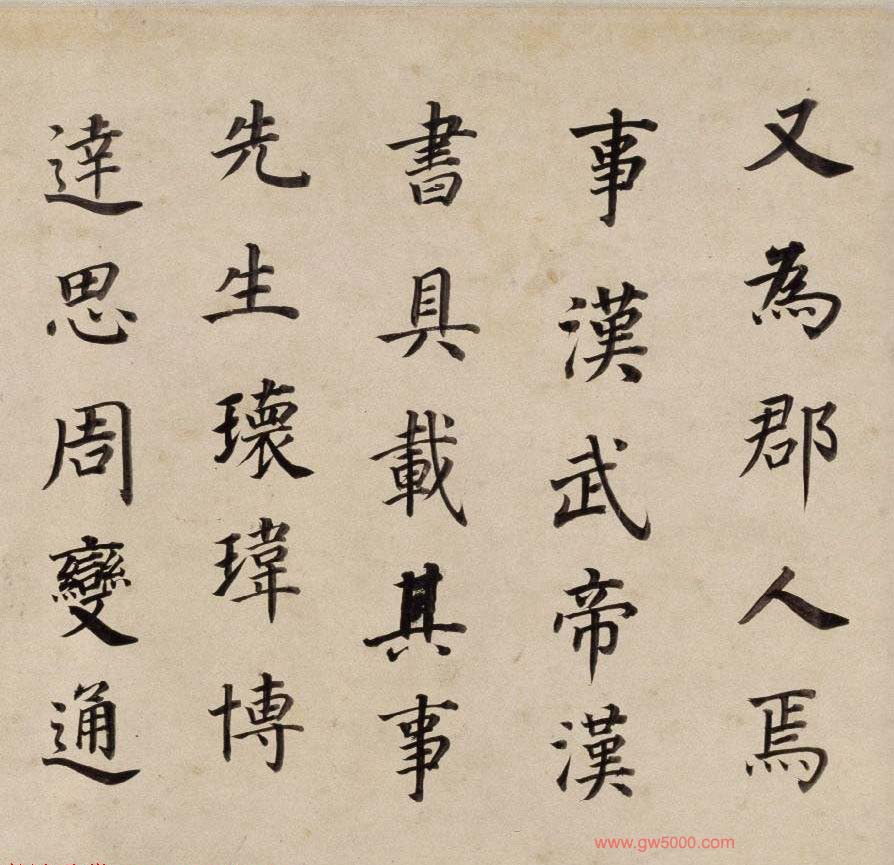 又為郡人焉
事漢武帝漢
書具載其事
先生瓌瑋博
達思周變通
www.gw5000.com